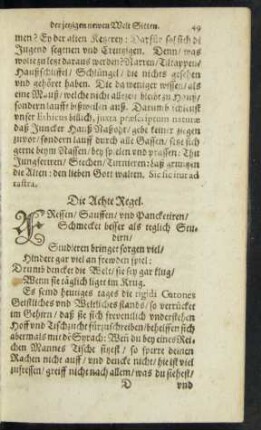 der jetzigen newen Welt Sitten. 49
men? Ey der alten Ketzerey: Darfür sol sich die
Jugend segnen vnd Creutzigen. Denn/ waß
wolte zu letzt daraus werden? Narren/ Tiltappen/
Haußschlüffel/ Schlüngel/ die nichts gesehen
vnd gehöret haben. Die da weniger wissen/ als
eine Mauß/ welche nicht allezeit bleibt zu Hauß/
sondern laufft bißweilen auß. Darumb
vnser Ethicus billich, juxta præscriptum naturæ
daß Juncker Hanß Naßtopf/ gebe seiner
zuvor/ sondern lauff durch alle Gassen/ setze sich
gerne beym Nassen/ bey spielen vnd prassen: Thu
Jungferiren/ Stechen/ Turnieren: laß
die Alten: den lieben Gott walten. Sic itur ad
astra.
Die Achte Regel.
FReissen/ Sauffen/ vnd Panckeriren/
Schmecket besser als teglich Stu-
dirn/
Studieren bringet sorgen viel/
Hindert gar viel an frewden spiel:
Drumb dencke die Welt/ sie sey gar klug/
Wenn sie täglich liget im Krug.
Es seind heutiges tages die rigidi Catones
Geistliches vnd Weltliches stands/ so verrücket
im Gehirn/ daß sie sich frevenlich vnderstehen
Hoff vnd Tischzucht fürzuschreiben/ behelffen sich
abermals mit der Sprach: Wen du bey eines Rei-
chen Mannes Tische sitzest/ so sperre deinen
Rachen nicht auff/ vnd dencke nicht/ hie ist viel
zufressen/ greiff nicht nach allem/ was du siehest/
D vnd